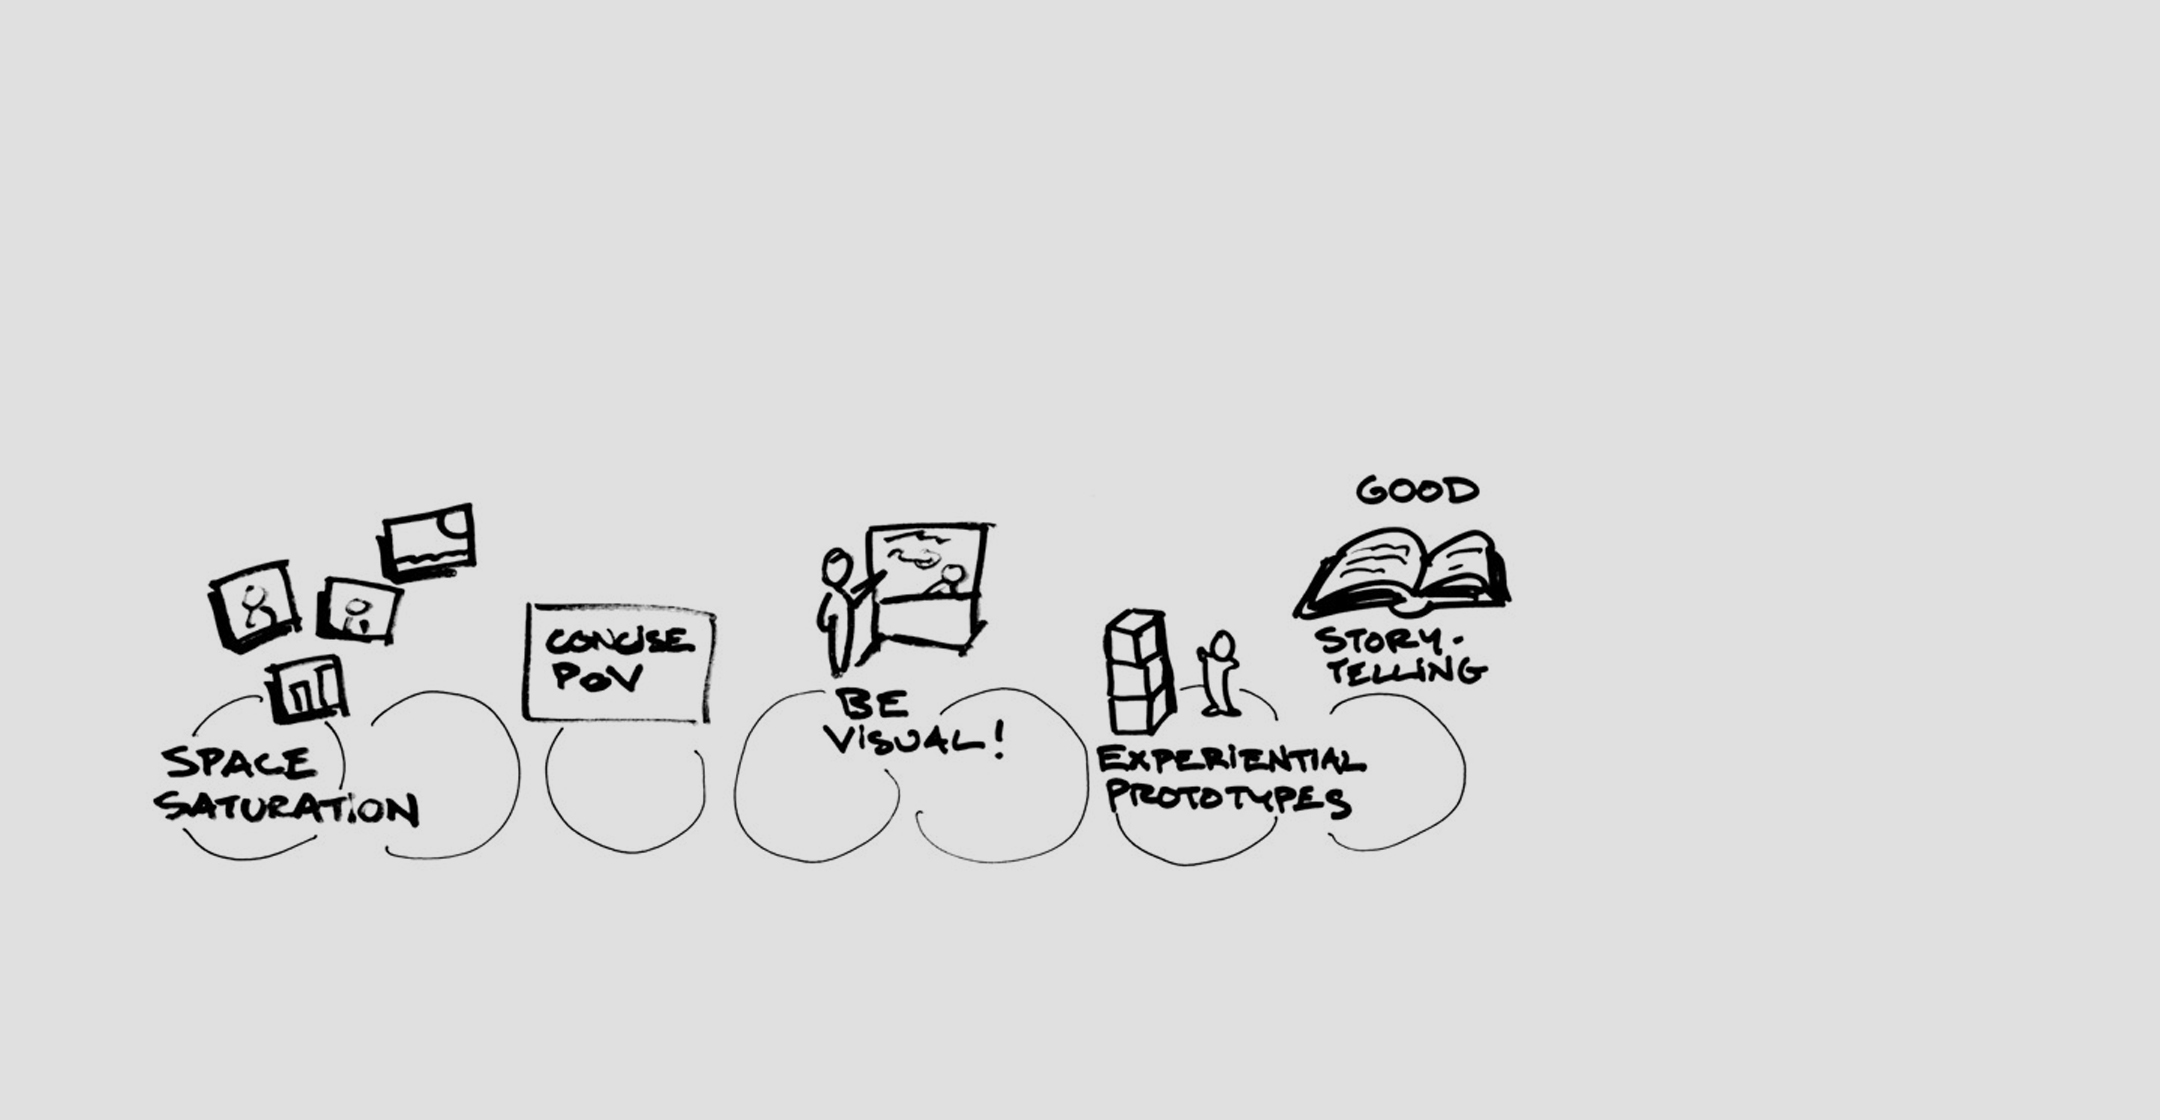 SPACE
SATURATION
CONCISE
POV
BE
VISUAL!
EXPERIENTIAL
PROTOTYPES
GOOD
STORY-
TELLING